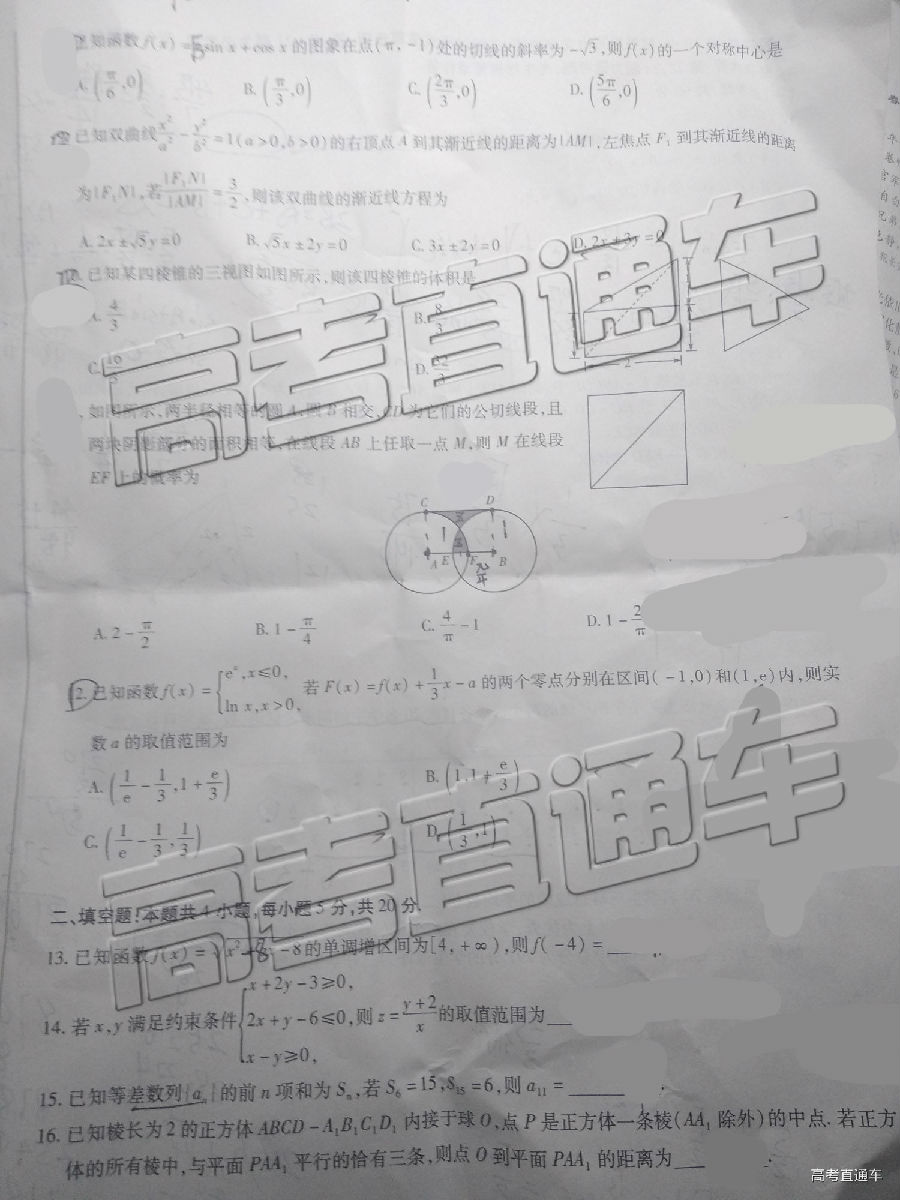 已知函数 f(x) = sin x + cos x 的图象在点(π, -1)处的切线的斜率为 -√3, 则 f(x) 的一个对称中心是
A. (π/6, 0) B. (π/3, 0) C. (2π/3, 0) D. (5π/6, 0)
已知双曲线 x²/a² - y²/b² = 1(a>0, b>0)的右顶点 A 到其渐近线的距离为|AM|, 左焦点 F₁ 到其渐近线的距离
为|F₁N|, 若 |F₁N|/|AM| = 3/2, 则该双曲线的渐近线方程为
A. 2x ± √5y = 0 B. √5x ± 2y = 0 C. 3x ± 2y = 0 D. 2x ± 3y = 0
已知某四棱锥的三视图如图所示, 则该四棱锥的体积是
A. 4/3 B. 8/3
C. D.
2
如图所示, 两半径相等的圆 A, 圆 B 相交, CD 为它们的公切线段, 且
两块阴影部分的面积相等, 在线段 AB 上任取一点 M, 则 M 在线段
EF 上的概率为
C D
A E F B
A. 2 - π/2 B. 1 - π/4 C. 4/π - 1 D. 1 - 2/π
2. 已知函数 f(x) = { eˣ, x≤0, ln x, x>0, 若 F(x) = f(x) + 1/3 x - a 的两个零点分别在区间(-1,0)和(1,e)内, 则实
数 a 的取值范围为
A. (1/e - 1/3, 1 + e/3) B. (1, 1 + e/3)
C. (1/e - 1/3, 1/3) D. (1/3, 1)
二、填空题: 本题共 4 小题, 每小题 5 分, 共 20 分.
13. 已知函数 f(x) = -8 的单调增区间为[4, +∞), 则 f(-4) = ____
14. 若 x, y 满足约束条件 { x+2y-3≥0, 2x+y-6≤0, x-y≥0, 则 z = (y+2)/x 的取值范围为 ___
15. 已知等差数列{aₙ}的前 n 项和为 Sₙ, 若 S₆ = 15, S₁₅ = 6, 则 a₁₁ = ____
16. 已知棱长为 2 的正方体 ABCD - A₁B₁C₁D₁ 内接于球 O, 点 P 是正方体一条棱(AA₁ 除外)的中点. 若正方
体的所有棱中, 与平面 PAA₁ 平行的恰有三条, 则点 O 到平面 PAA₁ 的距离为 ___
高考直通车
高考直通车
高考直通车